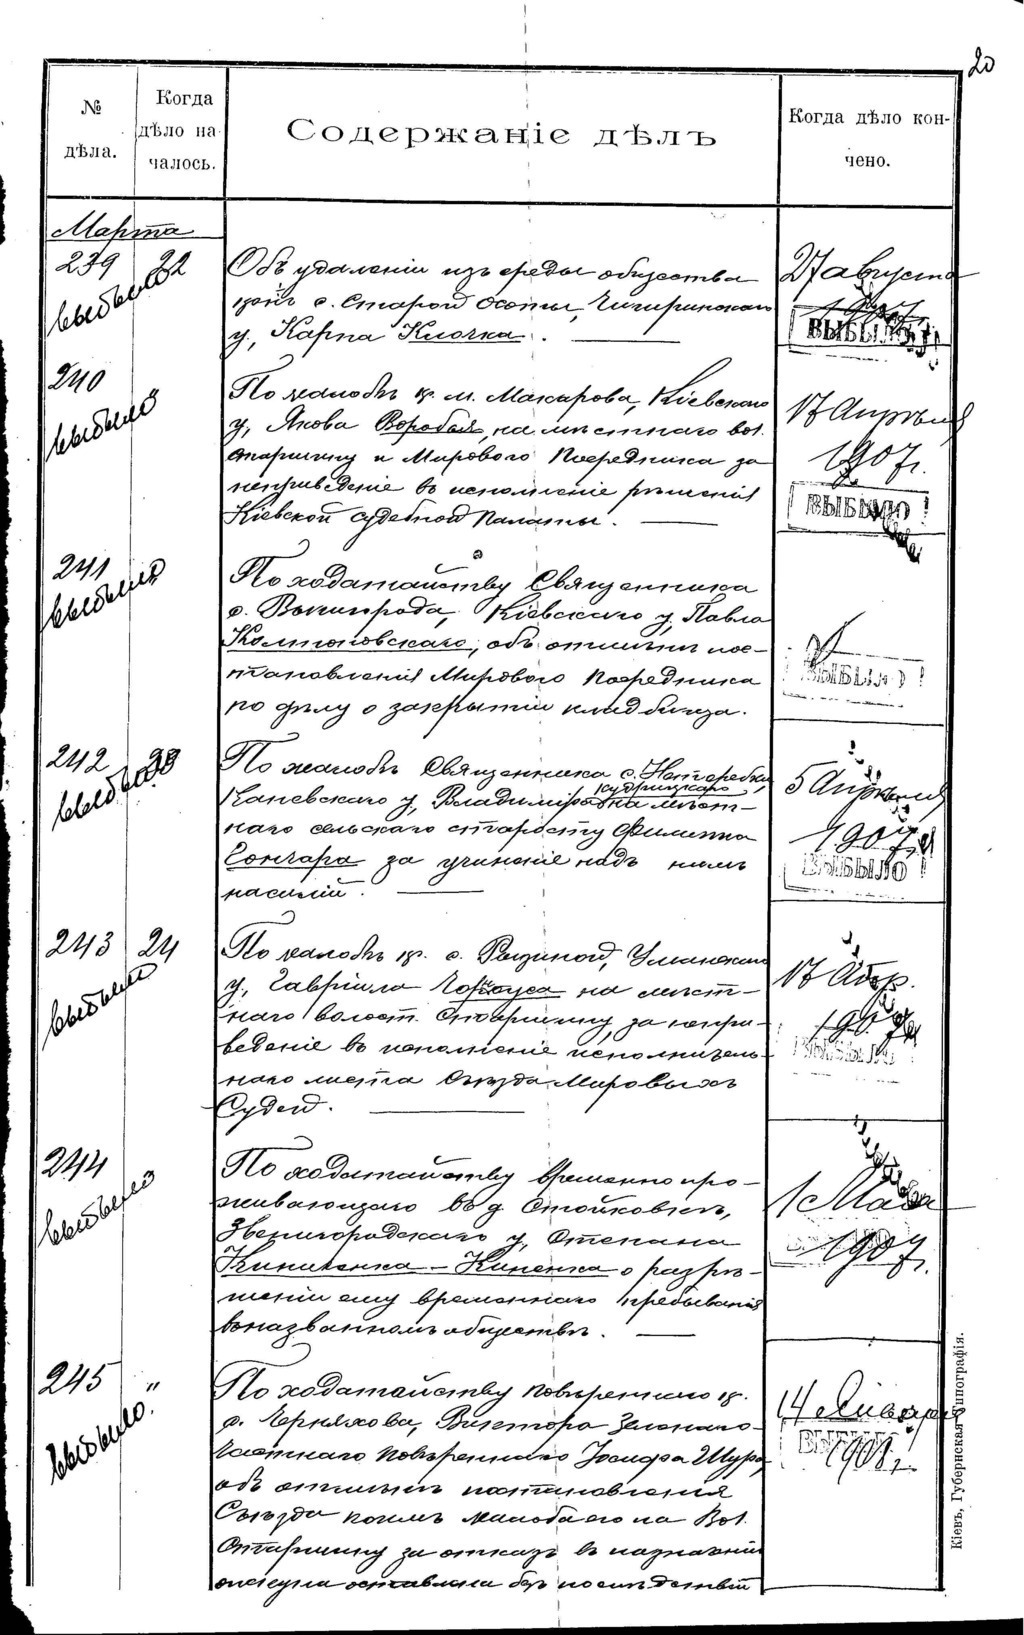 20
№ дѣла.
Когда дѣло началось.
Содержаніе дѣлъ
Когда дѣло кончено.
Марта
239 22 выбыло
Объ удаленіи изъ среды общества
с. Старой Осоты, Чигиринскаго
у, Карпа Клочка.
27 августа
1907
ВЫБЫЛО
240 " выбыло
По жалобѣ кр. м. Макарова, Кіевскаго
у, Якова Воробья, на мѣстнаго вол.
старшину и Мирового Посредника за
неприведеніе въ исполненіе рѣшенія
Кіевской судебной Палаты.
17 Апрѣля
1907 г.
ВЫБЫЛО!
241 выбыло
По ходатайству Священника
с. Вышгорода, Кіевскаго у, Павла
объ отмѣнѣ пос-
тановленія Мирового Посредника
по дѣлу о закрытіи кладбища.
ВЫБЫЛО!
242 23 выбыло
По жалобѣ Священника с. Нетеребки,
Каневскаго у, Владиміра на мѣст-
наго сельскаго старосту Филиппа
Гончара за учиненіе надъ нимъ
насилій.
5 Апрѣля
1907 г
ВЫБЫЛО!
243 24 выбыло
По жалобѣ кр. с. Рыжиной, Уманскаго
у, Гавріила на мѣст-
наго волост. старшину, за непри-
веденіе въ исполненіе исполнитель-
наго листа Съѣзда Мировыхъ
Судей.
17
1907 г
244 выбыло
По ходатайству временно про-
живающаго въ д. Стойковкѣ,
Звенигородскаго у, Степана
о разрѣ-
шеніи ему временнаго пребыванія
въ названномъ обществѣ.
1 Мая
1907 г.
245 " выбыло.
По ходатайству повѣреннаго кр.
с. Черняхова, Виктора Зеленаго
Частнаго Повѣреннаго Іосифа
объ отмѣнѣ постановленія
Съѣзда коимъ жалоба его на Вол.
Старшину за отказъ въ назначеніи
опекуна оставлена безъ послѣдствій
14 Января
1908 г.
Кіевъ, Губернская Типографія.